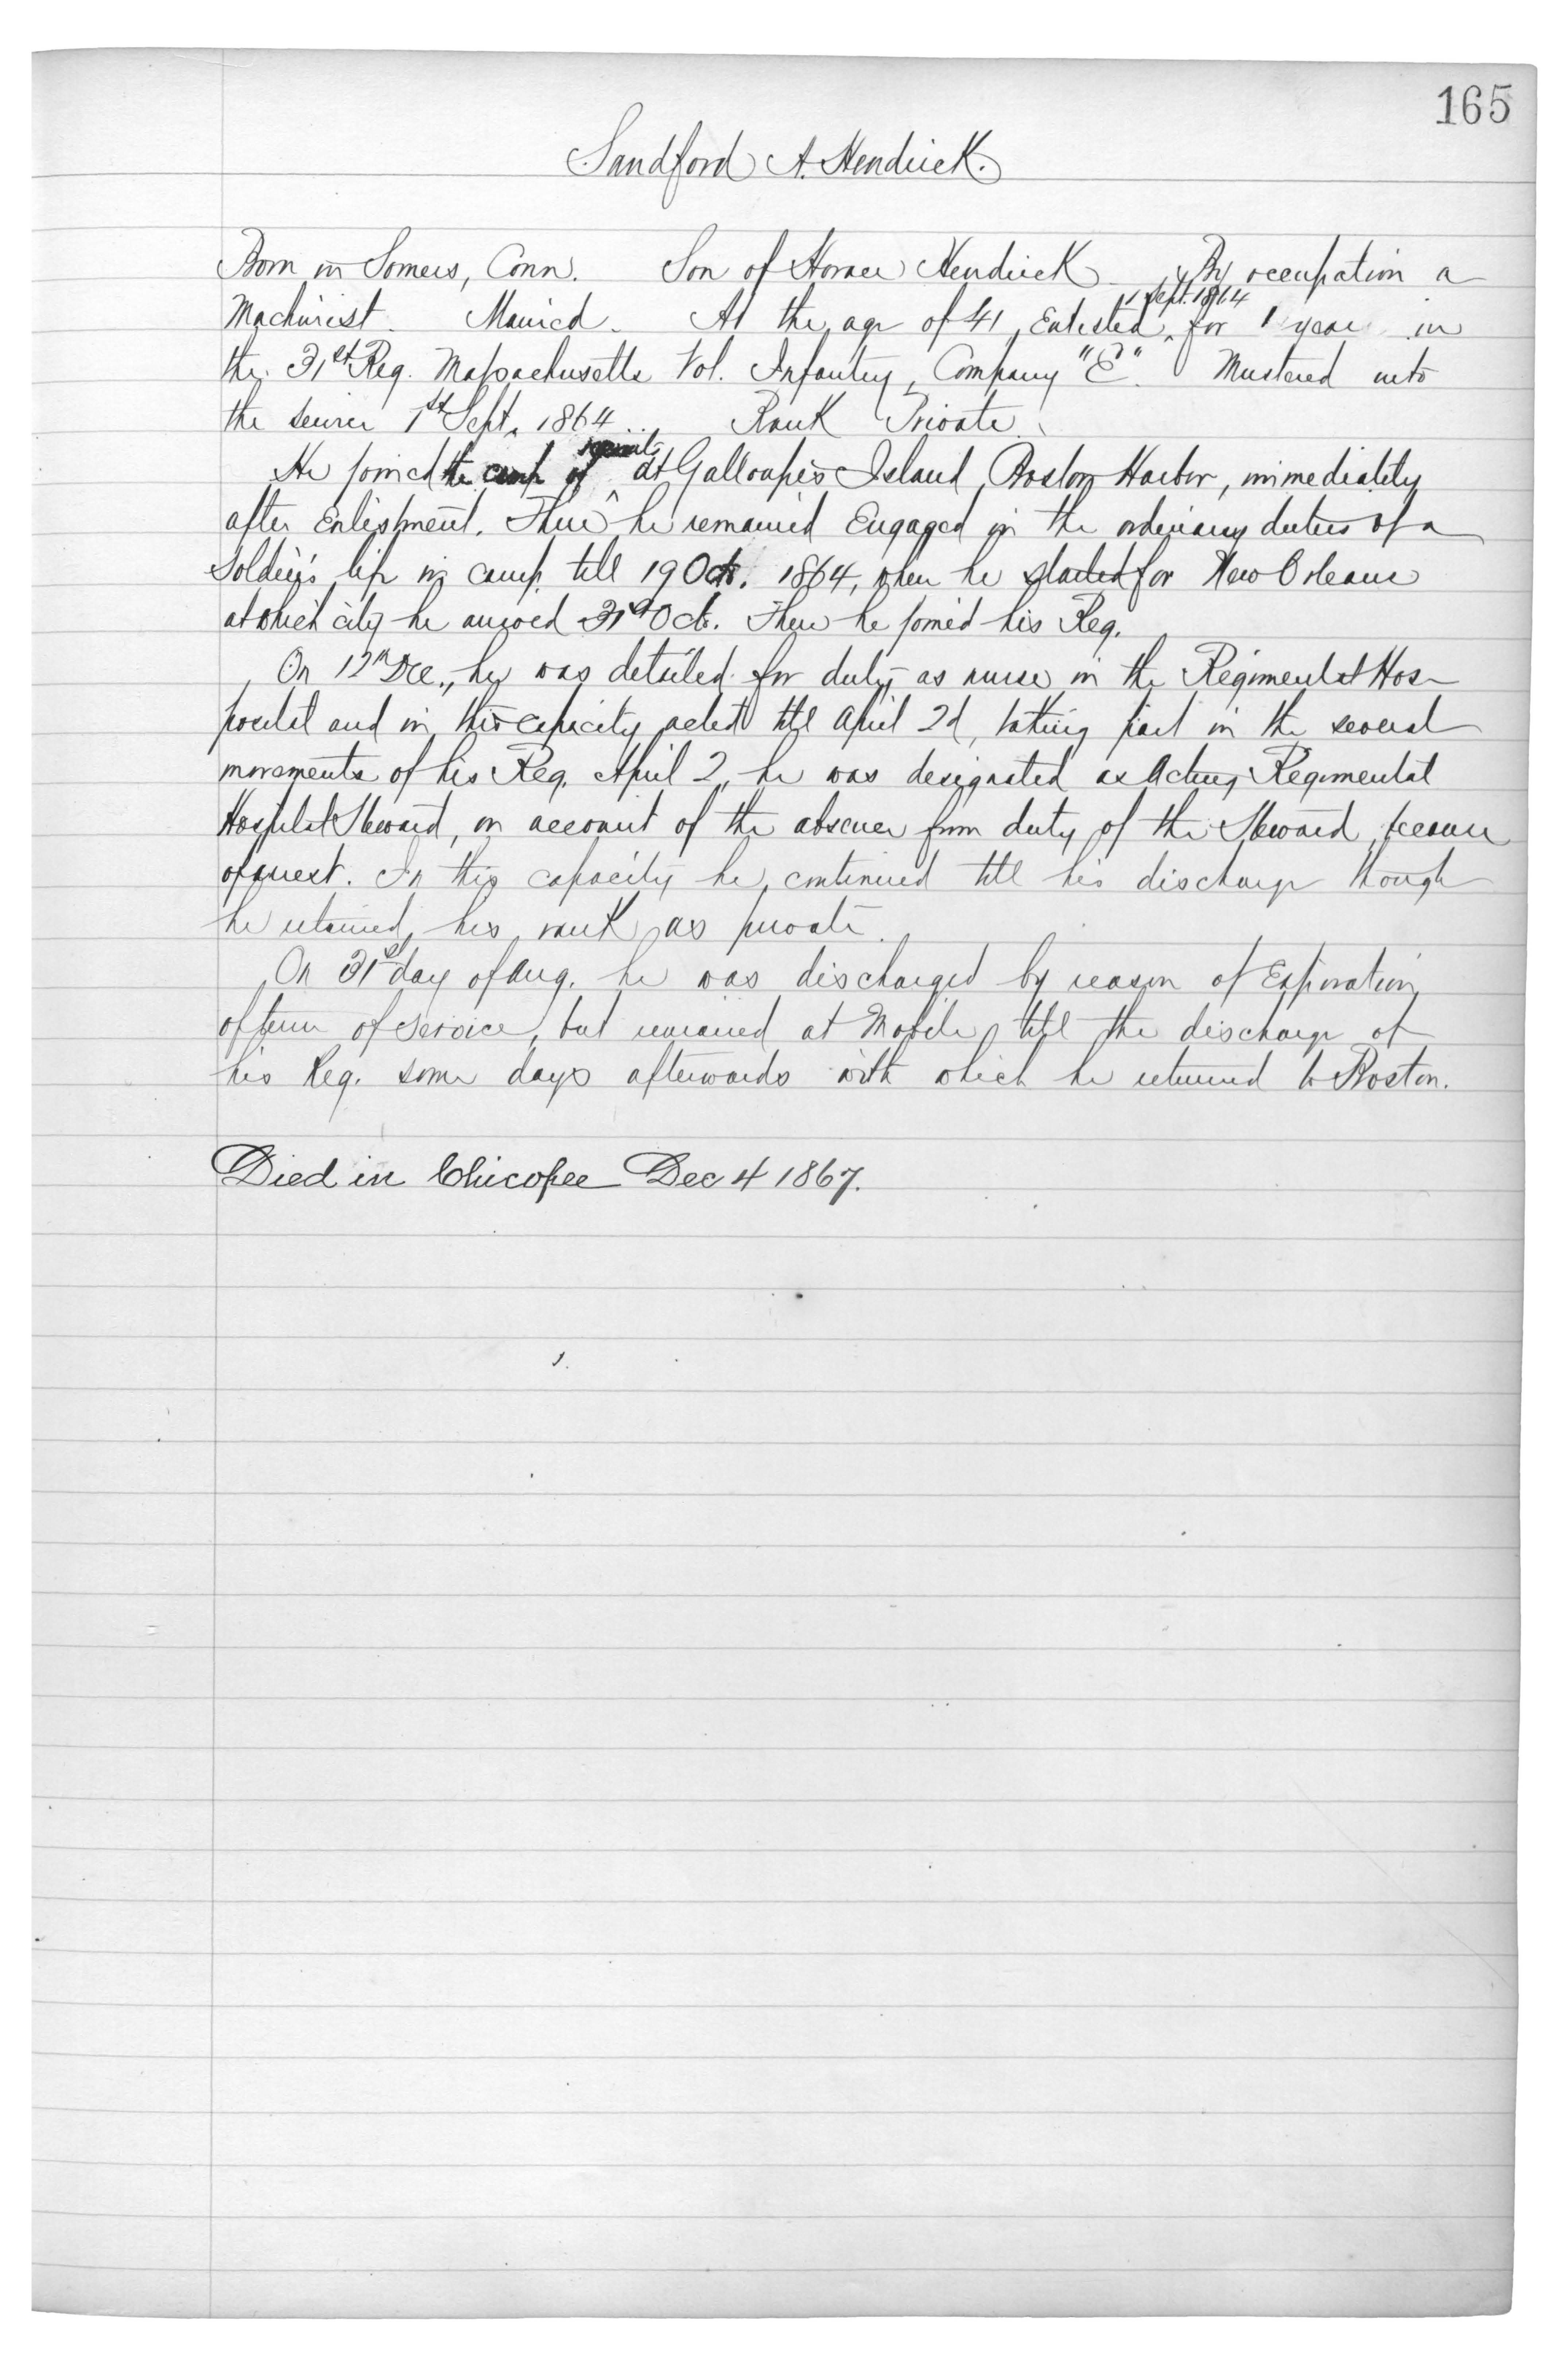 165
Sandford A. Hendrick.
Born in Somers, Conn. Son of Horace Hendrick. By occupation a
1 Sept. 1864
Machinist. Married. At the age of 41, Enlisted, for 1 year in
the 31st Reg. Massachusetts Vol. Infantry, Company "E". Mustered into
the service 1st Sept. 1864. Rank Private.
recruits
He joined the camp of at Galloupes Island, Boston Harbor, immediately
after Enlistment. There he remained Engaged in the ordinary duties of a
Soldier's life in camp till 19 Oct. 1864, when he started for New Orleans
at which city he arrived 31st Oct. There he joined his Reg.
On 12th Dec., he was detailed for duty as nurse in the Regimental Hos-
pital and in this capacity acted till April 2d, taking part in the several
movements of his Reg. April 2, he was designated as Acting Regimental
Hospital Steward, on account of the absence from duty of the Steward, because
of arrest. In this capacity he continued till his discharge though
he retained his rank as private.
On 31st day of Aug. he was discharged by reason of Expiration
of term of service, but remained at Mobile till the discharge of
his Reg. some days afterwards with which he returned to Boston.
Died in Chicopee Dec 4 1867.